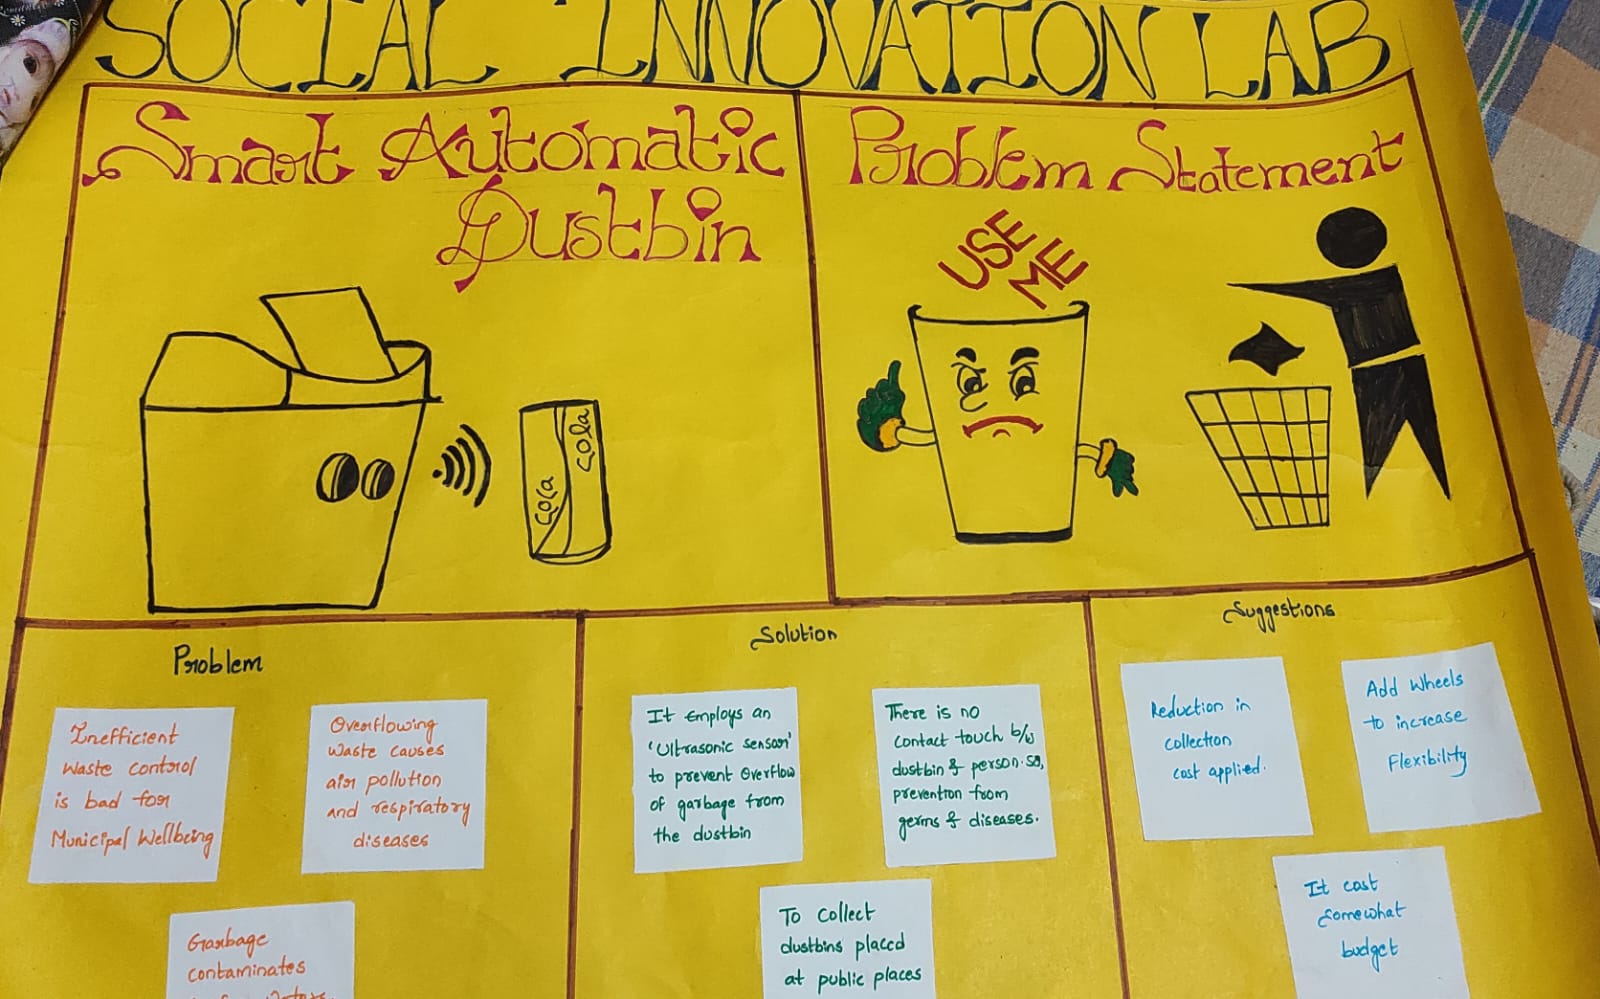 SOCIAL INNOVATION LAB
Smart Automatic
Dustbin
Cola
Cola
Problem Statement
USE
ME
Problem
Inefficient
Waste control
is bad for
Municipal Wellbeing
Overflowing
Waste causes
air pollution
and respiratory
diseases
Garbage
contaminates
Solution
It Employs an
'Ultrasonic sensor'
to prevent Overflow
of garbage from
the dustbin
There is no
Contact touch b/w
dustbin & person. So,
prevention from
germs & diseases.
To Collect
dustbins placed
at public places
Suggestions
Reduction in
collection
cost applied.
Add Wheels
to increase
Flexibility
It cost
Somewhat
budget